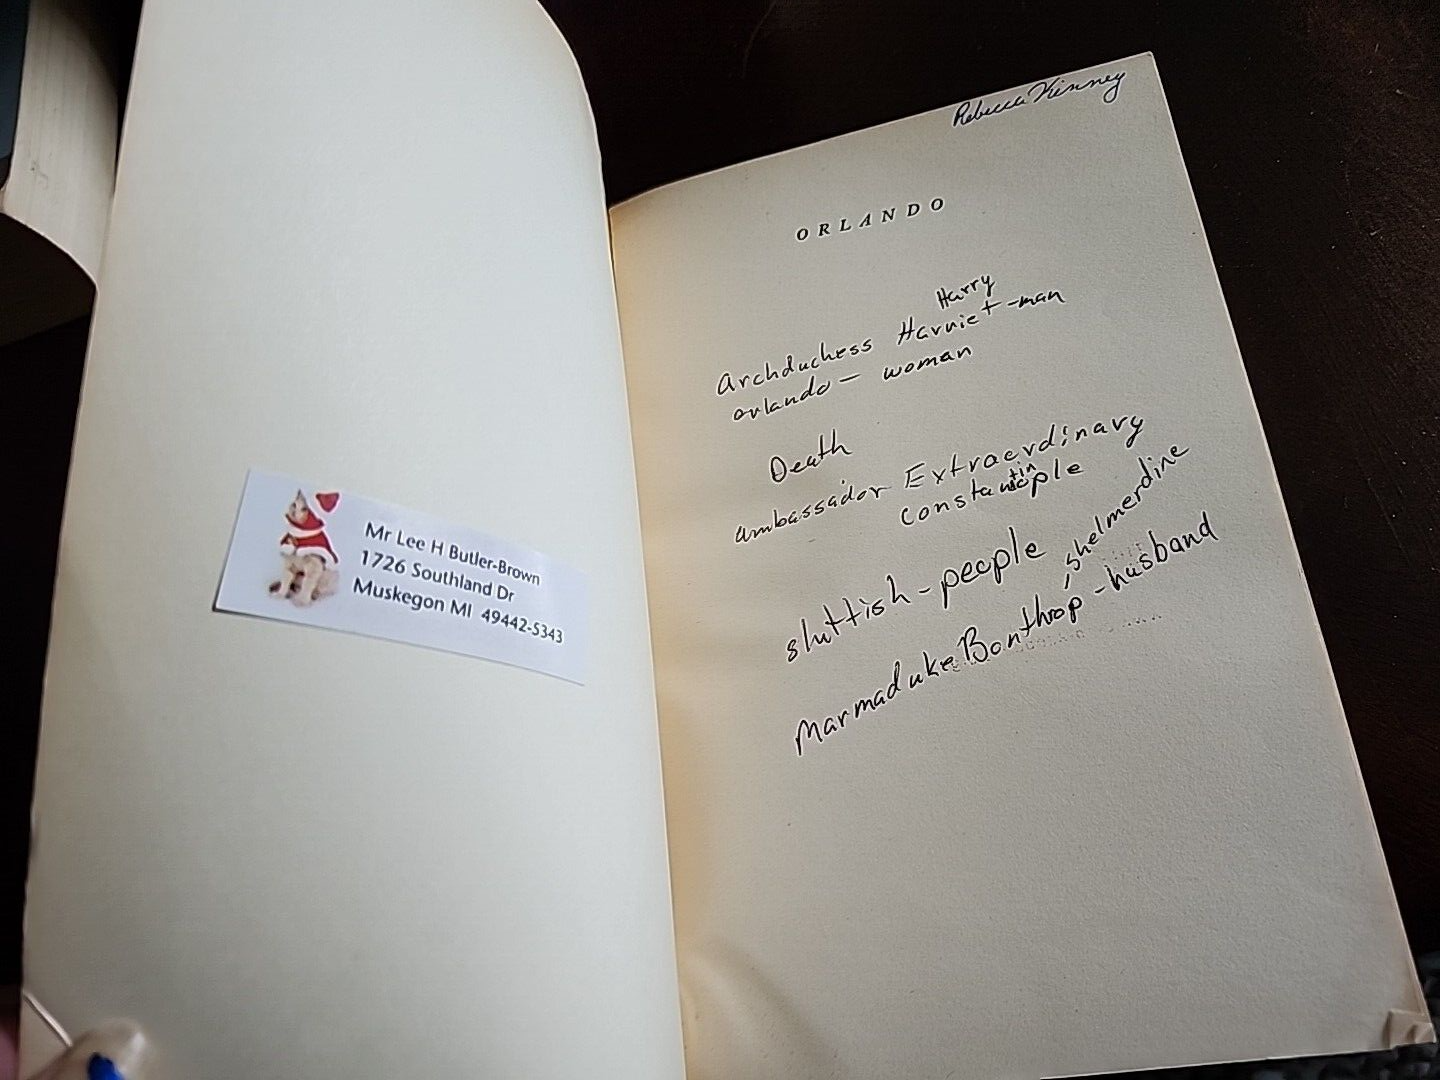 Mr Lee H Butler-Brown
1726 Southland Dr
Muskegon MI 49442-5343
Rebecca Kinney
ORLANDO
Harry
Archduchess Harriet-man
orlando - woman
Death
Ambassador Extraordinary
Constantinople
sluttish-people
Marmaduke Bonthrop, shelmerdine -husband